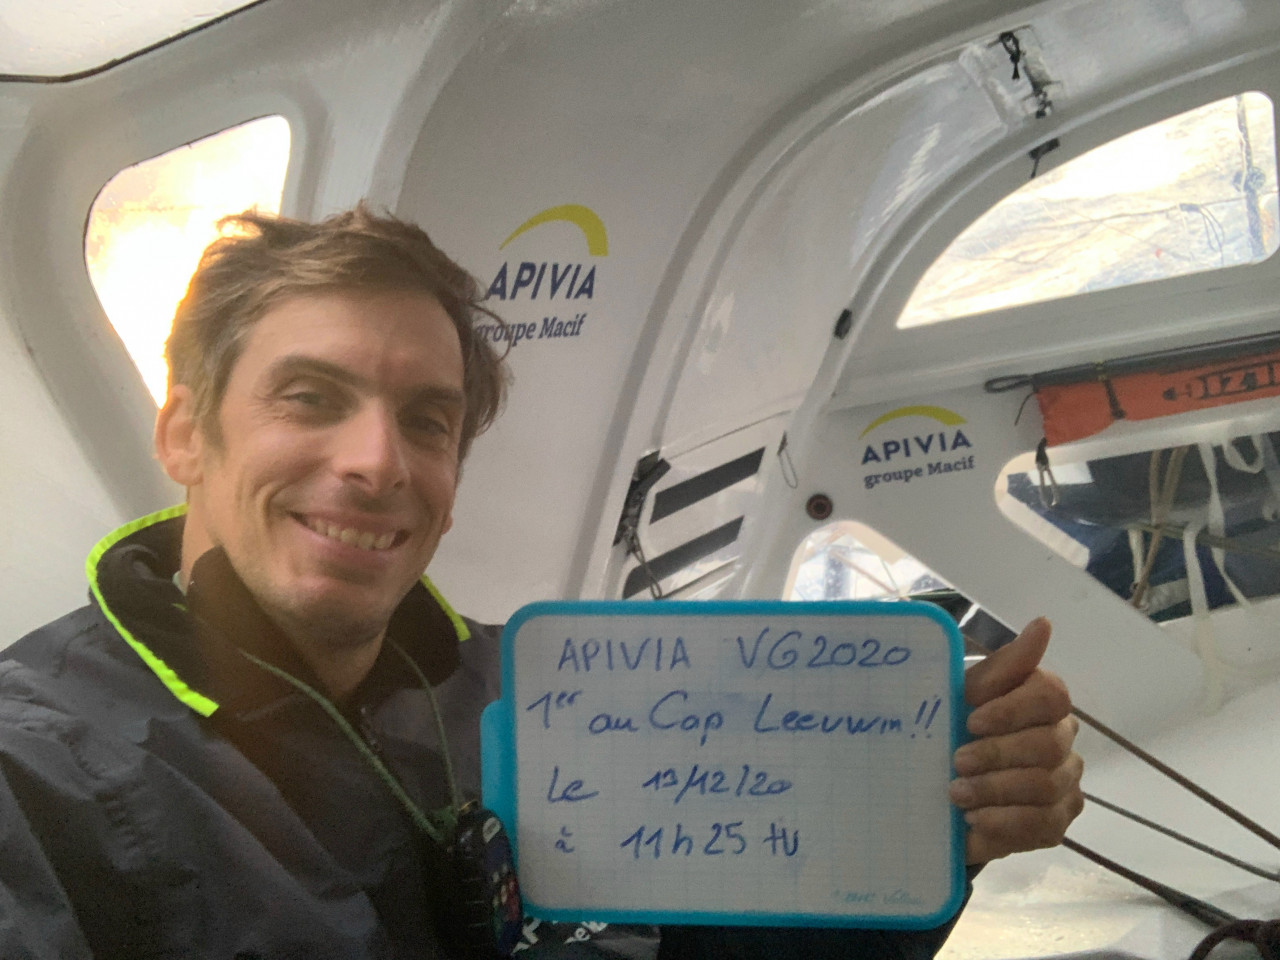 APIVIA
groupe Macif
APIVIA
groupe Macif
APIVIA VG2020
1er au Cap Leeuwin!!
Le 13/12/20
à 11h25 tu